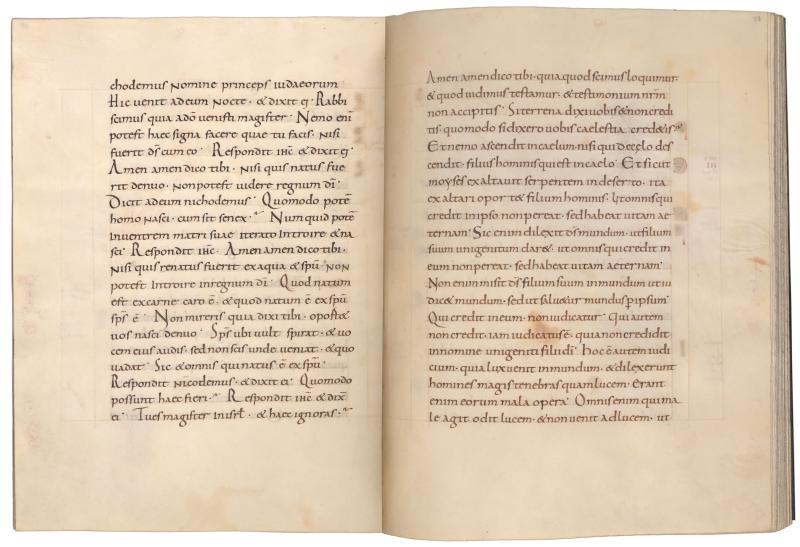 chodemus nomine princeps iudaeorum
Hic venit ad eum nocte · & dixit ei Rabbi
scimus quia a dō venisti magister · Nemo enī
potest haec signa facere quae tu facis · nisi
fuerit dſ cum eo · Respondit ihc & dixit ei
Amen amen dico tibi · nisi quis natus fue
rit denuo · non potest videre regnum dī ·
Dicit ad eum nichodemus · Quomodo potē
homo nasci · cum sit senex · Numquid potē
in ventrem matri suae iterato introire & na
sci · Respondit ihc · Amen amen dico tibi ·
nisi quis renatus fuerit ex aqua & spū non
potest introire in regnum dī · Quod natum
est ex carne caro ē · & quod natum ē ex spū
spſ ē · Non mireris quia dixi tibi · oport&
vos nasci denuo · Spſ ubi vult spirat · & vo
cem eius audis · sed non scis unde veniat · & quo
vadat · Sic & omnis qui natus ē ex spū ·
Respondit nicodemus · & dixit ei · Quomodo
possunt haec fieri · Respondit ihc & dix̄
ei · Tu es magister in isrł · & haec ignoras ·
Amen amen dico tibi · quia quod scimus loquimur ·
& quod vidimus testamur · & testimonium nrm
non accipitis · Si terrena dixi vobis & non credi
tis · quomodo si dixero vobis caelestia cred&is
Et nemo ascendit in caelum · nisi qui de cęlo des
cendit · filius hominis qui est in caelo · Et sicut
moyses exaltavit serpentem in deserto · ita
exaltari oport& filium hominis · ut omnis qui
credit in ipso non pereat · sed habeat vitam ae
ternam · Sic enim dilexit dſ mundum · ut filium
suum unigenitum dar& · ut omnis qui credit in
eum non pereat · sed habeat vitam aeternam ·
Non enim misit dſ filium suum in mundum ut iu
dic& mundum · sed ut salv&ur mundus p ipsum ·
Qui credit in eum · non iudicatur · Qui autem
non credit · iam iudicatus ē · quia non credidit
in nomine unigeniti filii dī · Hoc ē autem iudi
cium · quia lux venit in mundum · & dilexerunt
homines magis tenebras quam lucem · Erant
enim eorum mala opera · Omnis enim qui ma
le agit · odit lucem · & non venit ad lucem · ut